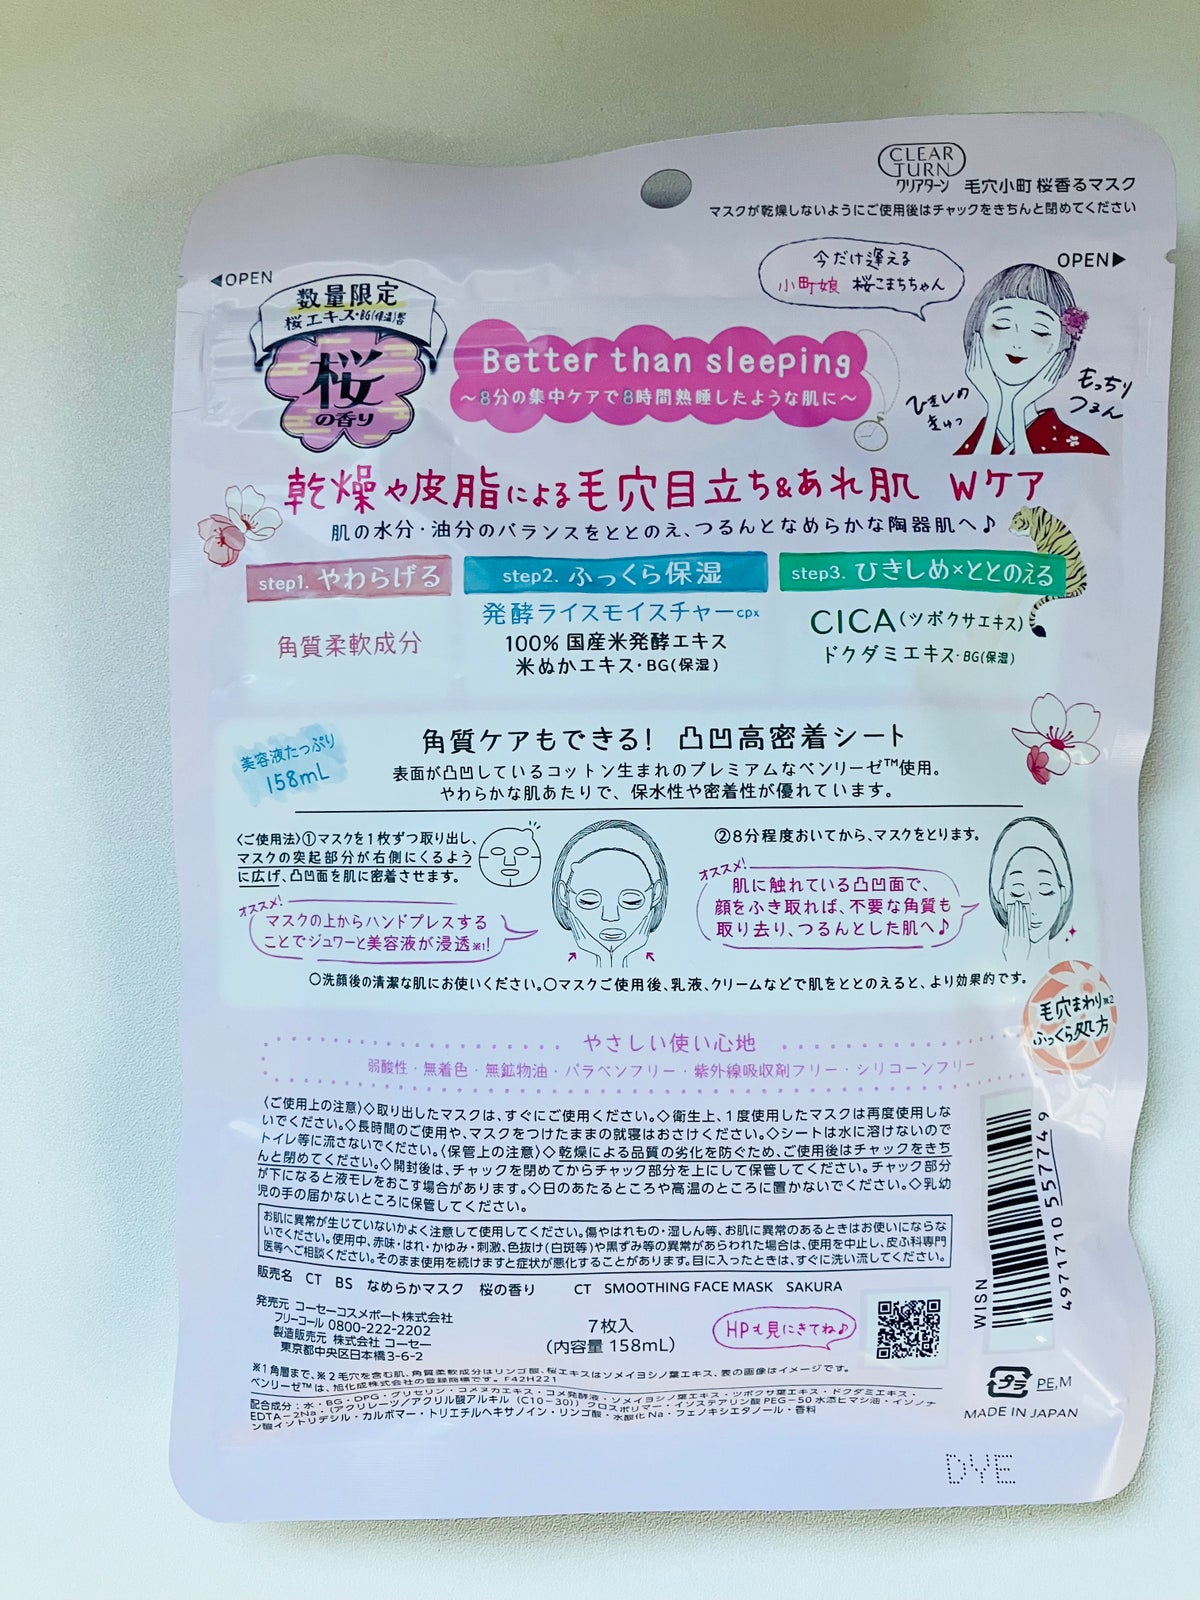 CLEAR
TURN
クリアターン 毛穴小町 桜香るマスク
マスクが乾燥しないようにご使用後はチャックをきちんと閉めてください
◀OPEN
OPEN▶
数量限定
桜エキス・BG(保湿)配合
桜
の香り
今だけ逢える
小町娘 桜こまちちゃん
Better than sleeping
～8分の集中ケアで8時間熟睡したような肌に～
ひきしめ
きゅっ
もっちり
つるん
乾燥や皮脂による毛穴目立ち&あれ肌 Wケア
肌の水分・油分のバランスをととのえ、つるんとなめらかな陶器肌へ♪
step1. やわらげる
角質柔軟成分
step2. ふっくら保湿
発酵ライスモイスチャーcpx
100% 国産米発酵エキス
米ぬかエキス・BG(保湿)
step3. ひきしめ×ととのえる
CICA(ツボクサエキス)
ドクダミエキス・BG(保湿)
美容液たっぷり
158mL
角質ケアもできる! 凸凹高密着シート
表面が凸凹しているコットン生まれのプレミアムなベンリーゼ™使用。
やわらかな肌あたりで、保水性や密着性が優れています。
〈ご使用法〉①マスクを1枚ずつ取り出し、
マスクの突起部分が右側にくるよう
に広げ、凸凹面を肌に密着させます。
オススメ!
マスクの上からハンドプレスする
ことでジュワーと美容液が浸透※1!
②8分程度おいてから、マスクをとります。
オススメ!
肌に触れている凸凹面で、
顔をふき取れば、不要な角質も
取り去り、つるんとした肌へ♪
○洗顔後の清潔な肌にお使いください。○マスクご使用後、乳液、クリームなどで肌をととのえると、より効果的です。
毛穴まわり※2
ふっくら処方
やさしい使い心地
弱酸性・無着色・無鉱物油・パラベンフリー・紫外線吸収剤フリー・シリコーンフリー
〈ご使用上の注意〉◇取り出したマスクは、すぐにご使用ください。◇衛生上、1度使用したマスクは再度使用しな
いでください。◇長時間のご使用や、マスクをつけたままの就寝はおさけください。◇シートは水に溶けないので
トイレ等に流さないでください。〈保管上の注意〉◇乾燥による品質の劣化を防ぐため、ご使用後はチャックをきち
んと閉めてください。◇開封後は、チャックを閉めてからチャック部分を上にして保管してください。チャック部分
が下になると液モレをおこす場合があります。◇日のあたるところや高温のところに置かないでください。◇乳幼
児の手の届かないところに保管してください。
お肌に異常が生じていないかよく注意して使用してください。傷やはれもの・湿しん等、お肌に異常のあるときはお使いにならな
いでください。使用中、赤味・はれ・かゆみ・刺激、色抜け(白斑等)や黒ずみ等の異常があらわれた場合は、使用を中止し、皮ふ科専門
医等へご相談ください。そのまま使用を続けますと症状が悪化することがあります。目に入ったときは、すぐに洗い流してください。
販売名 CT BS なめらかマスク 桜の香り CT SMOOTHING FACE MASK SAKURA
発売元 コーセーコスメポート株式会社
フリーコール 0800-222-2202
製造販売元 株式会社 コーセー
東京都中央区日本橋3-6-2
7枚入
(内容量 158mL)
HPも見にきてね♪
WISN
4971710 557749
※1角層まで、※2毛穴を含む肌、角質柔軟成分はリンゴ酸、桜エキスはソメイヨシノ葉エキス、表の画像はイメージです。
ベンリーゼ™は、旭化成株式会社の登録商標です。F42H221
配合成分：水・BG・DPG・グリセリン・コメヌカエキス・コメ発酵液・ソメイヨシノ葉エキス・ツボクサ葉エキス・ドクダミエキス・
EDTA-2Na・(アクリレーツ/アクリル酸アルキル(C10-30))クロスポリマー・イソステアリン酸PEG-50水添ヒマシ油・イソノナ
ン酸イソトリデシル・カルボマー・トリエチルヘキサノイン・リンゴ酸・水酸化Na・フェノキシエタノール・香料
プラ PE,M
MADE IN JAPAN
DYE